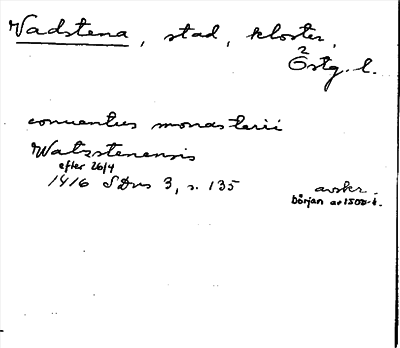 Vadstena, stad, kloster,
2
Östg. l.
conuentus monasterii
Watzstenensis
efter 26/4
1416 SDns 3, s. 135
avskr.
början av 1500-t.